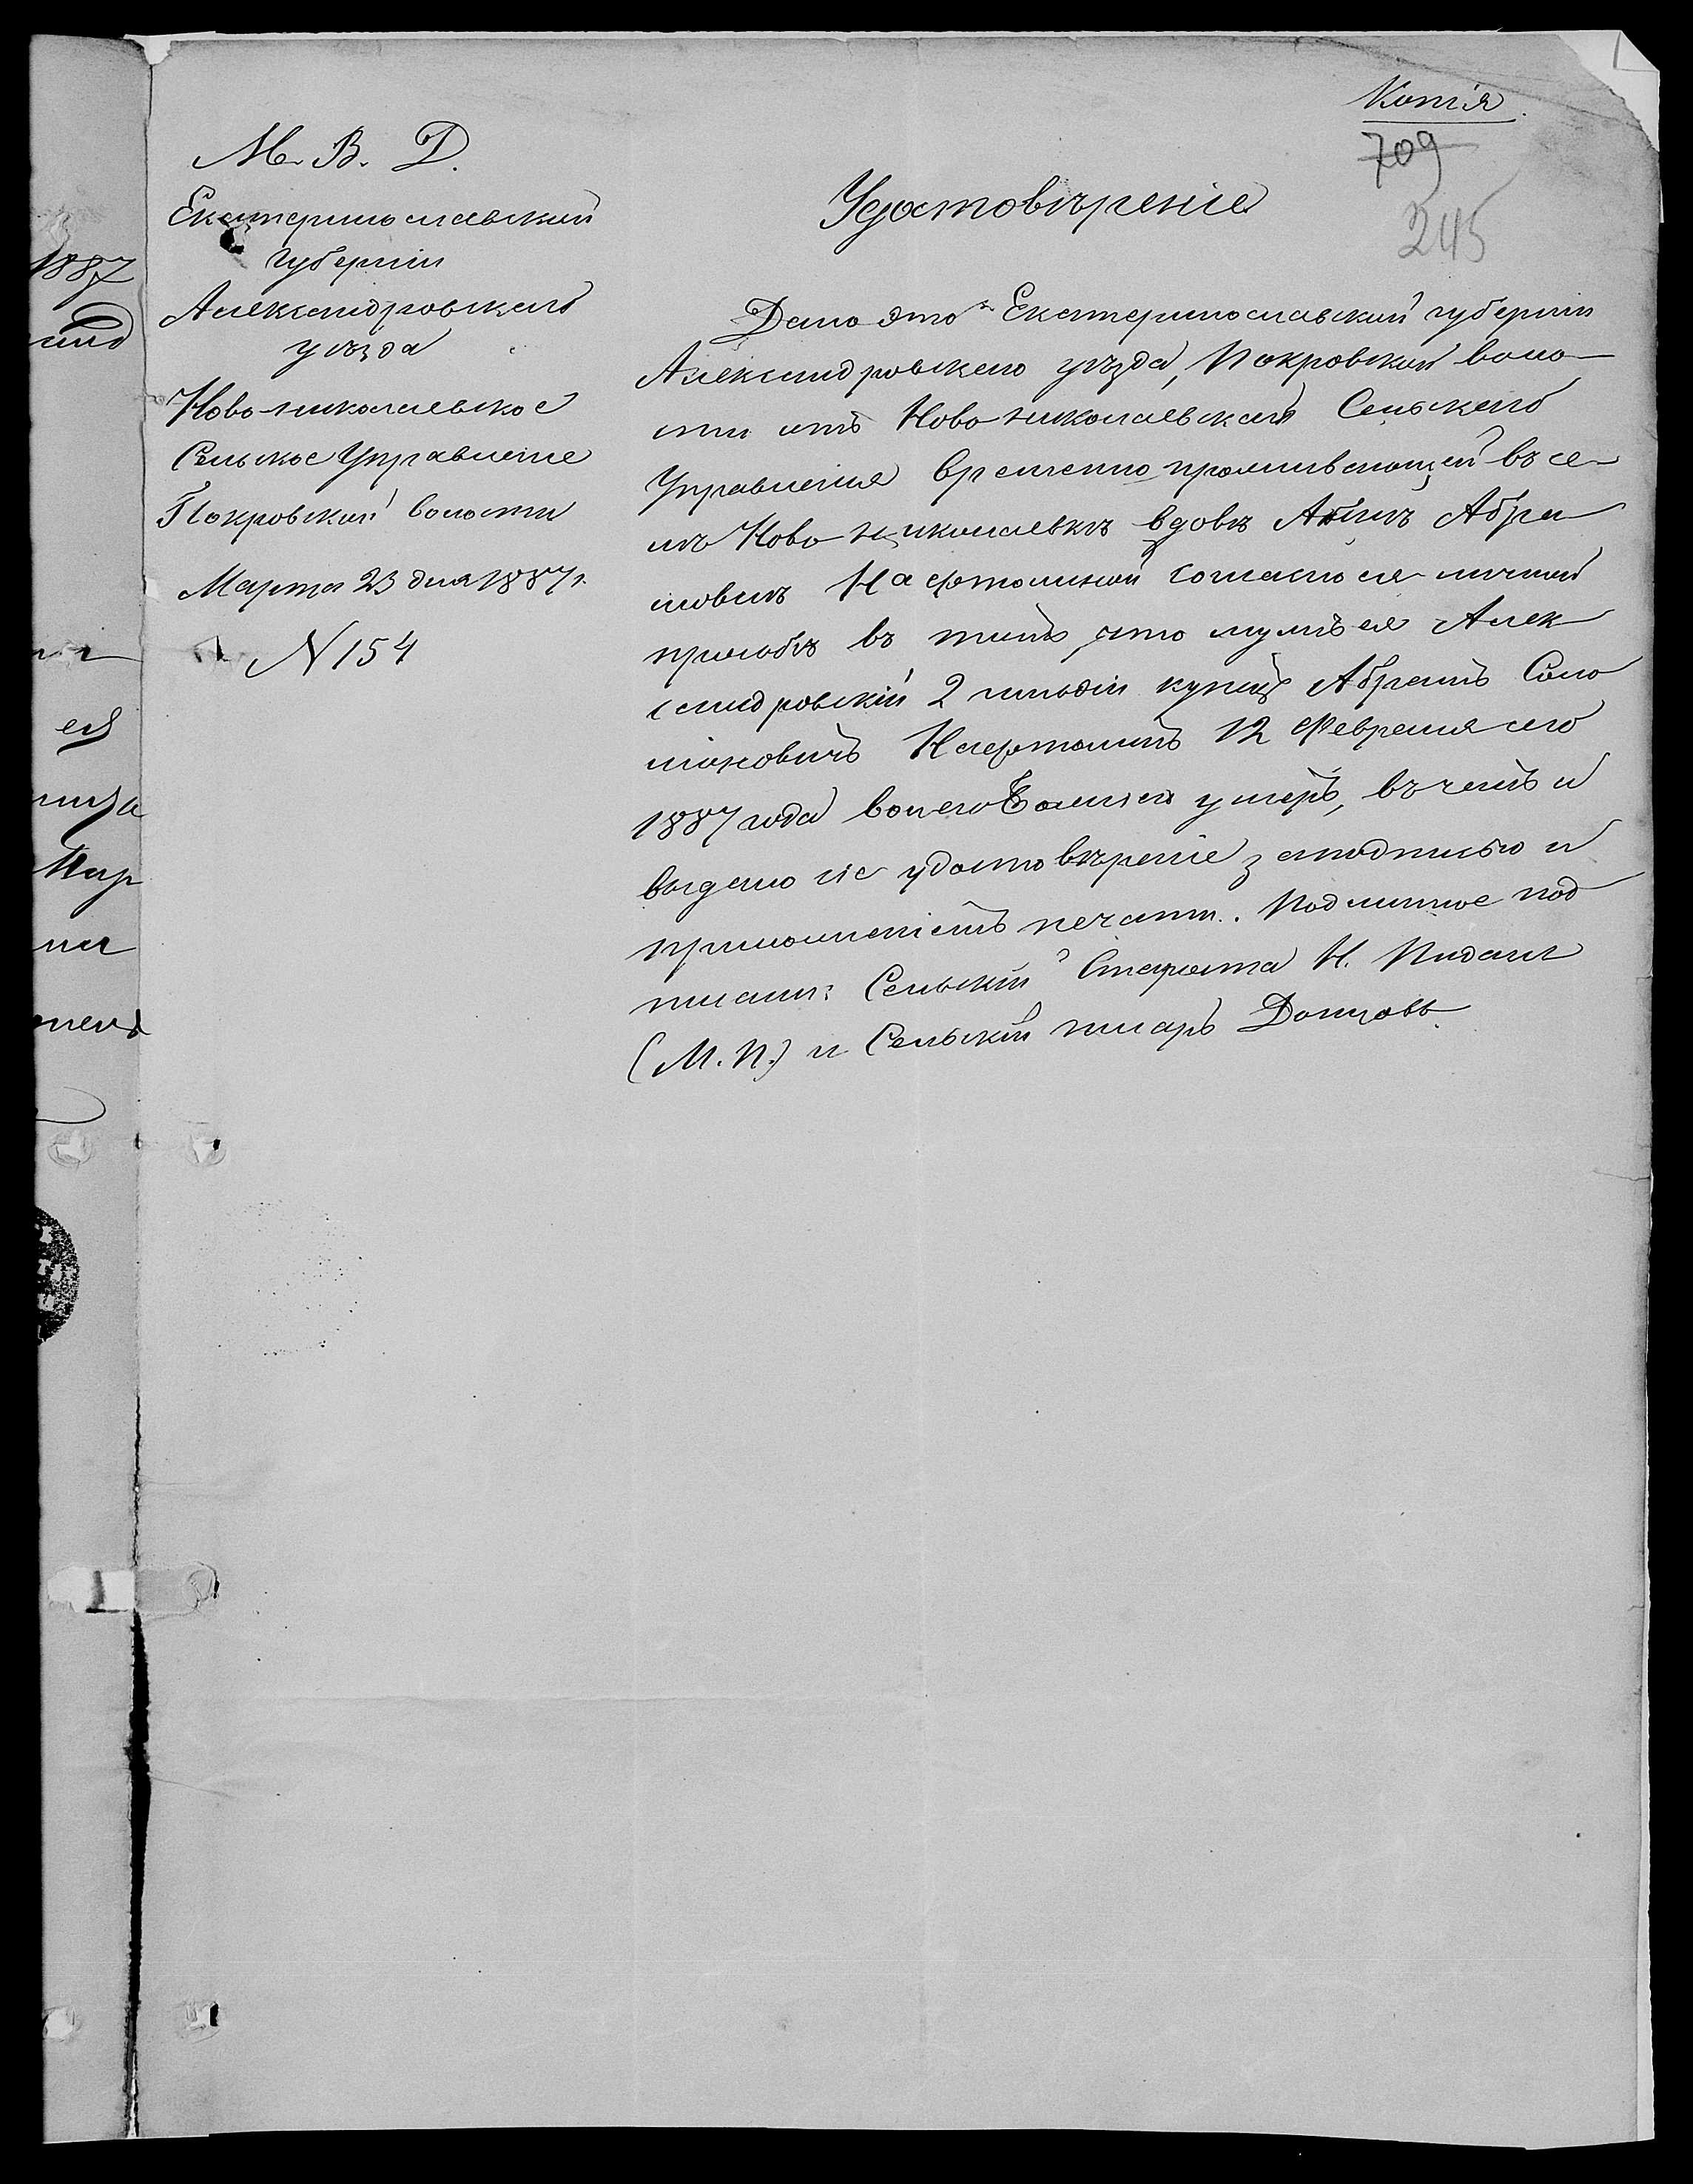 Копія.
709
245
М. В. Д.
Екатеринославской
губерніи
Александровскаго
уѣзда
Ново-николаевское
Сельское Управленіе
Покровской волости
Марта 23 дня 1887 г.
N 154
Удостовѣреніе
Дано это Екатеринославской губерніи
Александровскаго уѣзда, Покровской воло-
сти отъ Ново николаевскаго Сельскаго
Управленія временно проживающей въ се-
лѣ Ново николаевкѣ вдовѣ Абра
мовнѣ Нафтолиной согласно ея личной
просьбѣ въ томъ, что мужъ ея Алек
сандровскій 2 гильдіи купецъ Абрамъ Соло
моновичъ Нафтолинъ 12 Февраля сего
1887 года умеръ, въ чемъ и
выдано сіе удостовѣреніе за подписью и
приложеніемъ печати. Подлинное под
писали: Сельскій Староста Н.
(М. П.) и Сельскій писарь Донцовъ
1887
ея
Мар